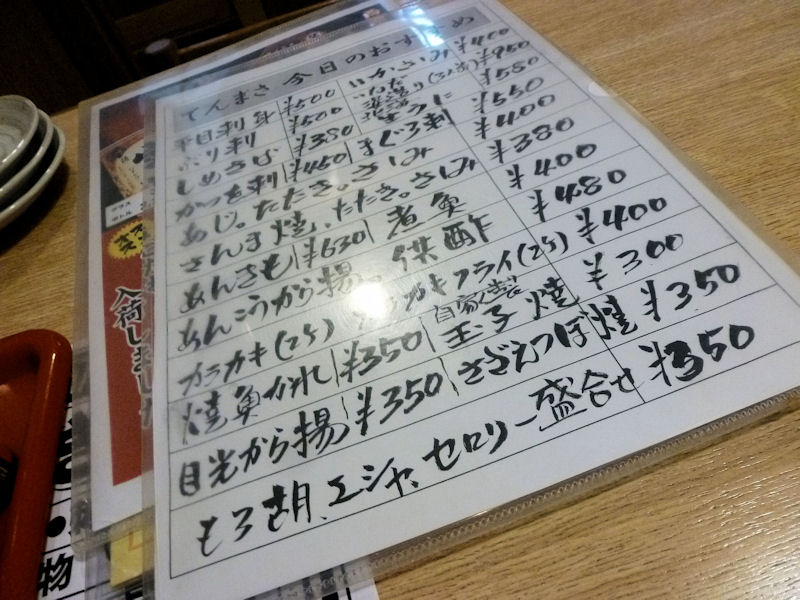 てんまさ 今日のおすすめ
平目刺身 ¥500 いかさしみ ¥400
ぶり刺 ¥500 ¥950
しめさば ¥380 生うに ¥580
かつを刺 ¥450 まぐろ刺 ¥550
あじ。たたき。さしみ ¥400
さんま焼、たたき。さしみ ¥380
あんきも ¥630 煮魚 ¥400
あんこうから揚 供酢 ¥480
カラカキ(2ケ) カキフライ(2ケ) ¥400
焼魚かれい ¥350 自家製 玉子焼 ¥300
目光から揚 ¥350 さざえつぼ焼 ¥350
もろ胡、エシャ、セロリー盛合せ ¥350
入荷しました
物